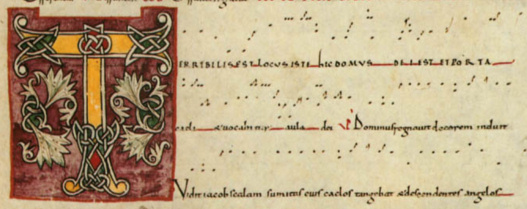 TERRIBILIS EST LOCUS ISTE hIC DOMUS DEI EST ET PORTA
caeli & vocabitur aula dei V Dominus regnavit decorem induit
Vidit iacob scalam sumitas eius caelos tangebat & descendentes angelos